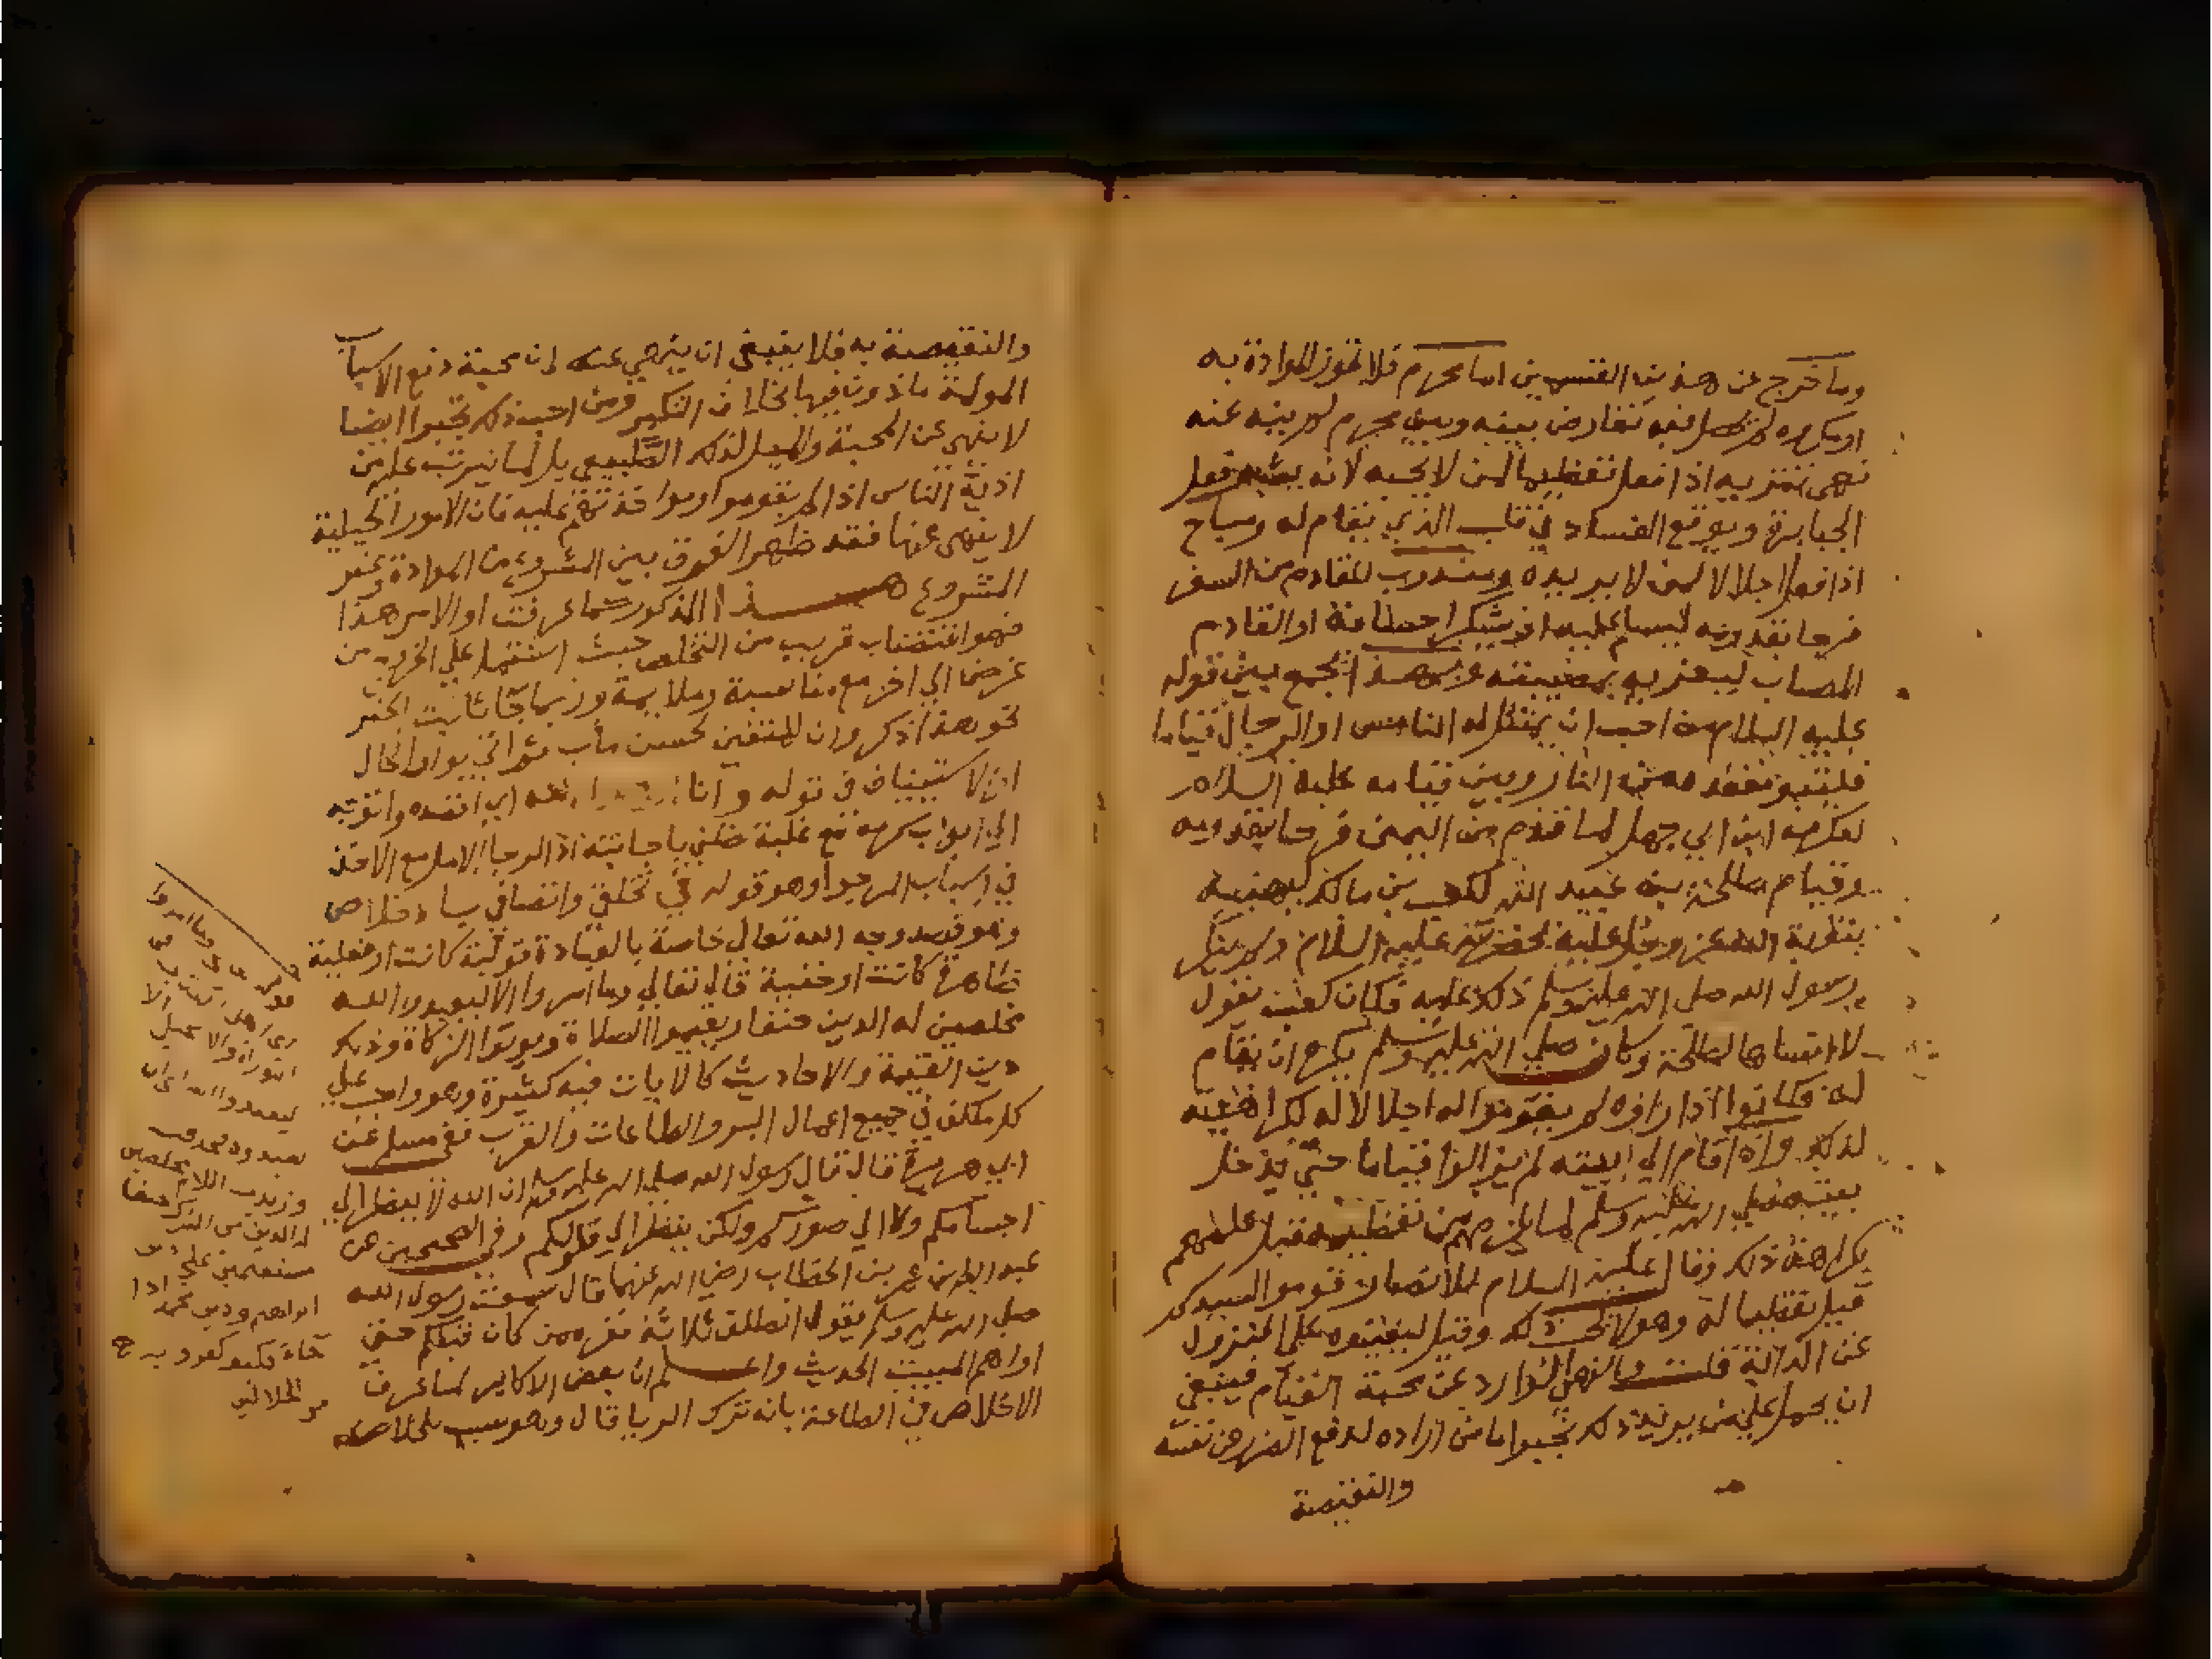 وما خرج عن هذين القسمين اما محرم فلا تجوز الموادة به
او مكروه لم تحصل فيه تعارض بينه وبين محرم لم ينه عنه
اذا فعل تعظيما لمن لا يحبه لانه يشبه فعل
الجبابرة ويوقع الفساد في قلب الذي يقام له ومباح
اذا فعل اجلالا لمن لا يريده ومندوب للقادم من السفر
فرحا بقدومه ليسلم عليه او يشكر احسانه او القادم
المصاب ليعزيه بمصيبته وبهذا يجمع بين قوله
عليه السلام من احب ان يتمثل له الناس او الرجال قياما
فليتبوأ مقعده من النار وبين قيامه عليه السلام
لعكرمة ابن ابي جهل لما قدم من اليمن فرحا بقدومه
وقيام طلحة بن عبيد الله لكعب بن مالك ليهنيه
بتوبة الله عز وجل عليه بحضرته عليه السلام ولم ينكر
رسول الله صلى الله عليه وسلم ذلك عليه فكان كعب يقول
لا انساها لطلحة وكان صلى الله عليه وسلم يكره ان يقام
له فكانوا اذا راوه لم يقوموا له اجلالا له لكراهيته
لذلك واذا قام الي بيته لم يزالوا قياما حتى يدخل
بيته صلى الله عليه وسلم لما يلزمهم من تعظيمه قبل علمهم
بكراهة ذلك وقال عليه السلام للانصار قوموا لسيدكم
قيل تعظيما له وهو لا يحب ذلك وقيل ليعينوه على النزول
عن الدابة قلت والنهي الوارد عن محبة القيام فينبغي
ان يحمل على من يريد ذلك تجبرا اما من اراده لدفع الضرر عن نفسه
والنقيصة
والنقيصة به فلا ينبغي ان ينهي عنه لان محبة دفع الاسباب
المولمة ماذون فيها بخلاف التكبر ومن احب ذلك تجبرا ايضا
لا ينهى عن المحبة والميل لذلك الطبيعي بل لما يترتب عليه من
اذية الناس اذا لم يقوموا ومواخذتهم عليه فان الامور الجبلية
لا ينهى عنها فقد ظهر الفرق بين المشروع من الموادة وغير
المشروع هذا المذكور كما عرفت او الامر هذا
فهو اقتضاب قريب من التخلص حيث اشتمل علي الخروج من
غرض الي اخر مع مناسبة وملايمة وربما جا ثابت الخبر
نحو هذا ذكر وان للمتقين لحسن مآب ثم اتي بواو الحال
او الاستيناف في قوله وانا الله اي اقصده واتوجه
الي ابواب كرمه مع غلبة ظني باجابته اذ الرجا الامل مع الاخذ
في اسباب المرجو وهو قوله في تخلقي واتصافي بالاخلاص
وهو قصد وجه الله تعالى خاصة بالعبادة قولية كانت او فعلية
ظاهرة كانت او خفية قال تعالي وما امروا الا ليعبدوا الله
مخلصين له الدين حنفا ويقيموا الصلاة ويوتوا الزكاة وذلك
دين القيمة والاحاديث كالايات فيه كثيرة وهو واجب علي
كل مكلف في جميع اعمال البر والطاعات والقرب ففي مسلم عن
ابي هريرة قال قال رسول الله صلى الله عليه وسلم ان الله لا ينظر الي
اجسامكم ولا الي صوركم ولكن ينظر الي قلوبكم وفي الصحيحين عن
عبد الله بن عمر بن الخطاب رضي الله عنهما قال سمعت رسول الله
صلى الله عليه وسلم يقول انطلق ثلاثة نفر ممن كان قبلكم حتى
اواهم المبيت الحديث واعلم ان بعض الاكابر لما عرف
الاخلاص في الطاعة بانه ترك الريا قال وهو سبب للخلاص
التوراة والانجيل
مستقيمين على دين
ابراهيم ودين محمد
من الجلالين